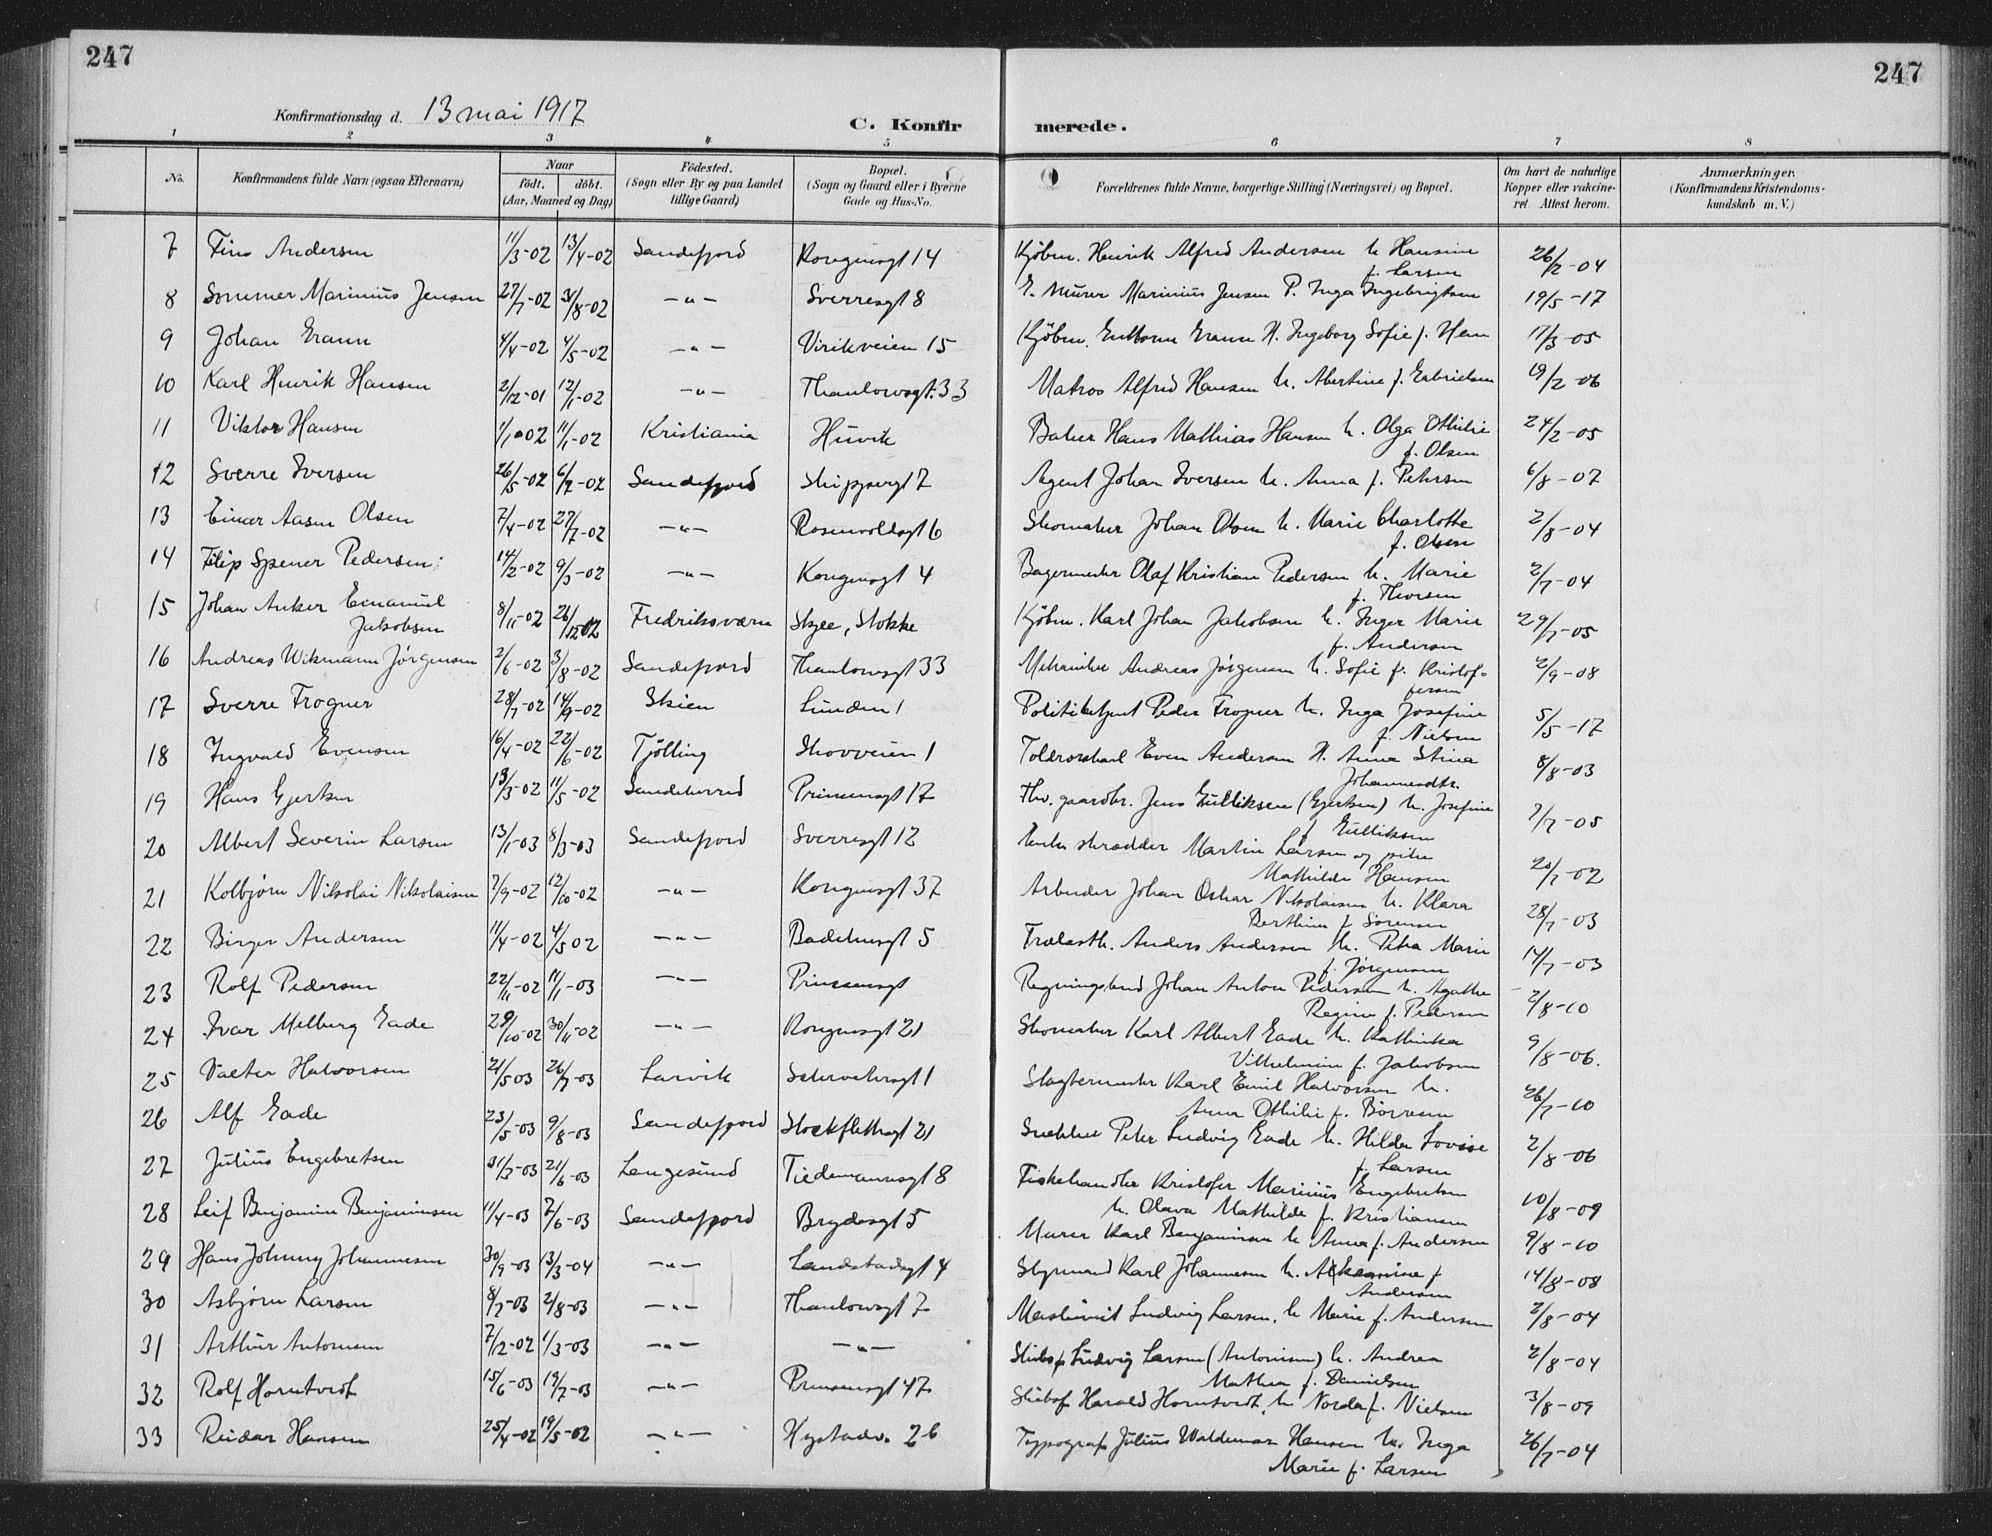 247
247
Konfirmationsdag d. 13 mai 1917
C. Konfirmerede.
1 2 3 4 5 6 7 8
No.
Konfirmandens fulde Navn (ogsaa Efternavn)
Naar
födt. döbt.
(Aar, Maaned og Dag)
Födested.
(Sogn eller By og paa Landet
tillige Gaard)
Bopæl.
(Sogn og Gaard eller i Byerne
Gade og Hus-No.
Forældrenes fulde Navne, borgerlige Stilling (Næringsvei) og Bopæl.
Om havt de naturlige
Kopper eller vakcine-
ret. Attest herom.
Anmærkninger.
(Konfirmandens Kristendoms-
kundskab m. V.)
7 Andersen 11/3-02 13/4-02 Sandefjord Kongensgt 14 Kjöbm. Henrik Alfred Andersen h. Hansine
f. Larsen 26/2-04
8 Sommer Marinius Jensen 27/7-02 31/8-02 -"- Sverresgt 8 Murer Marinius Jensen P. Inga Ingebrigtsen 19/5-17
9 Johan Graun 4/4-02 4/5-02 -"- Virikveien 15 Kjöbm. Graun H. Ingeborg Sofie f. Hem 11/3-05
10 Karl Henrik Hansen 2/12-01 12/1-02 -"- Thaulowsgt. 33 Matros Alfred Hansen h. Albertine f. Gabrielsen 19/2-06
11 Viktor Hansen 1/1-02 11/1-02 Kristiania Huvik Baker Hans Mathias Hansen h. Olga Othilie
f. Olsen 24/2-05
12 Sverre Iversen 26/5-02 6/7-02 Sandefjord Skippergt 7 Agent Johan Iversen h. Anna f. Petersen 6/8-07
13 Einar Aasen Olsen 7/4-02 27/7-02 -"- Rosenvoldsgt 6 Skomaker Johan Olsen h. Marie Charlotte
f. Olsen 2/8-04
14 Filip Spener Pedersen 14/2-02 9/3-02 -"- Kongensgt 4 Bagermester Olaf Kristian Pedersen h. Marie
f. Thorsen 2/7-04
15 Johan Anker Emanuel
Jakobsen 8/11-02 26/12 02 Fredriksværn Skjee, Stokke Kjöbm. Karl Johan Jakobsen h. Inger Marie
f. Andersen 29/7-05
16 Andreas Wikmann Jörgensen 2/6-02 3/8-02 Sandefjord Thaulowsgt 33 Mekaniker Andreas Jörgensen h. Sofie f. Kristof-
fersen 2/9-08
17 Sverre Frogner 28/7-02 14/9-02 Skien Lunden 1 Politibetjent Peder Frogner h. Inga Josefine
f. Nielsen 5/5-17
18 Ingvald Evensen 16/4-02 22/6-02 Tjölling Skovveien 1 Toldrorskarl Even Andersen H. Anna Stina
Johannesdtr. 8/8-03
19 Hans Gjertsen 13/3-02 11/5-02 Sandeherred Prinsensgt 17 Fhv. gaardbr. Jens Gulliksen (Gjertsen) h. Josefine
f Gulliksen 7/7-05
20 Albert Severin Larsen 13/1-03 8/3-03 Sandefjord Sverresgt 12 skrædder Martin Larsen og pike
Mathilde Hansen 20/7-02
21 Kolbjörn Nikolai Nikolaisen 7/9-02 12/10-02 -"- Kongensgt 37 Arbeider Johan Oskar Nikolaisen h. Klara
Berthine f. Sörensen 28/7-03
22 Birger Andersen 11/4-02 4/5 02 -"- Badehusgt 5 Trælasth. Anders Andersen h. Petra Marie
f. Jörgensen 14/7-03
23 Rolf Pedersen 22/11-02 11/1-03 -"- Prinsensgt Regningsbud Johan Anton Pedersen h. Agathe
Regine f. Pedersen 2/8-10
24 Ivar Melberg Gade 29/10-02 30/11-02 -"- Kongensgt 21 Skomaker Karl Albert Gade h. Kathinka
Vilhelmine f. Jakobsen 9/8-06.
25 Valter Halvorsen 21/5 03 26/7-03 Larvik 1 Slagtermester Karl Emil Halvorsen h.
Anna Othilie f. Börresen 26/7-10
26 Alf Gade 23/5-03 9/8-03 Sandefjord Stockflethsgt 21 Snekker Peter Ludvig Gade h. Hilda Lovise
f. Larsen 2/8-06
27 Julius Engebretsen 31/3-03 21/6-03 Langesund Tiedemannsgt 8 Fiskehandler Kristofer Marinius Engebretsen
h. Olava Mathilde f. Kristiansen 10/8-09
28 Leif Benjamin Benjaminsen 11/4-03 7/6-03 Sandefjord Brydesgt 5 Murer Karl Benjaminsen h Anna f. Andersen 9/8-10
29 Hans Johnny Johannesen 30/9-03 13/3-04 -"- Landstadsgt 4 Styrmand Karl Johannesen h. f
Andersen 14/8-08
30 Asbjörn Larsen 8/7-03 2/8-03 -"- Thaulowsgt 7 Maskinist Ludvig Larsen, h Marie f. Andersen 2/8-04
31 Arthur Antonsen 7/12-02 1/3-03 -"- -"- Skibsf Ludvig Larsen (Antonisen) h. Andrea
Mathea f. Danielsen 2/8-04
32 Rolf Horntvedt 15/6-03 19/7-03 -"- Prinsensgt 47 Skibsf Harald Horntvedt, h Norda f. Nielsen 3/8-09
33 Reidar Hansen 25/4-02 19/5-02 -"- Hystadv. 26 Typograf Julius Waldemar Hansen h. Inga
Marie f. Larsen 26/7-04